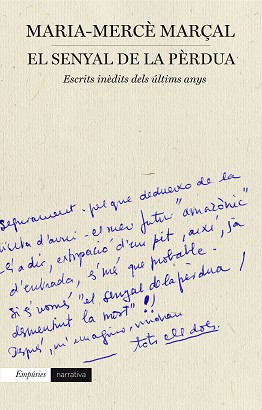 MARIA-MERCÈ MARÇAL
EL SENYAL DE LA PÈRDUA
Escrits inèdits dels últims anys
Segurament - pel que dedueixo de la
visita d'avui - el meu futur "amazònic"
- és a dir, extirpació d'un pit, així, ja
d'entrada, és més que probable.
Si és només "el senyal de la pèrdua /
desmentint la mort"!
Després, m'imagino, vindran
— tots els dols.
Empúries
narrativa